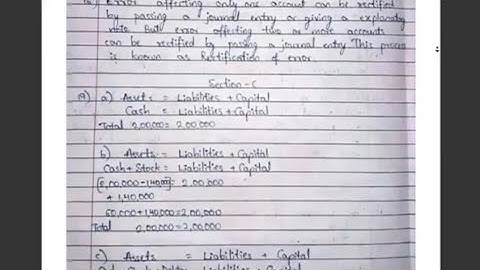 Error affecting only one account can be rectified
by passing a journal entry or giving a explanatory
note. But error affecting two or more accounts
can be rectified by passing a journal entry. This process
is known as Rectification of error.
Section-C
19) a) Assets = Liabilities + Capital
Cash = Liabilities + Capital
Total 2,00,000 = 2,00,000
b) Assets = Liabilities + Capital
Cash + Stock = Liabilities + Capital
[2,00,000 - 1,40,000] = 2,00,000
+ 1,40,000
60,000 + 1,40,000 = 2,00,000
Total 2,00,000 = 2,00,000
c) Assets = Liabilities + Capital
= Liabilities + Capital